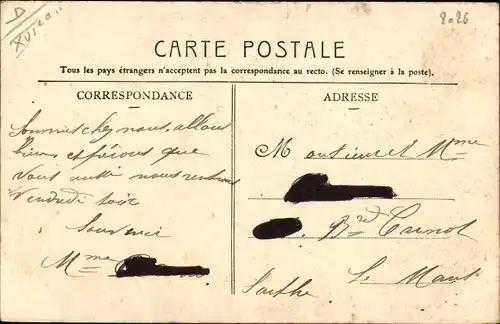 D
2026
CARTE POSTALE
Tous les pays étrangers n'acceptent pas la correspondance au recto. (Se renseigner à la poste).
CORRESPONDANCE
Sommes chez nous, allons
bien espérons que
vous aussi nous rentrons
Vendredi soir
Souvenir
Mme
ADRESSE
Monsieur et Mme
Bd Carnot
Le Mans
Sarthe